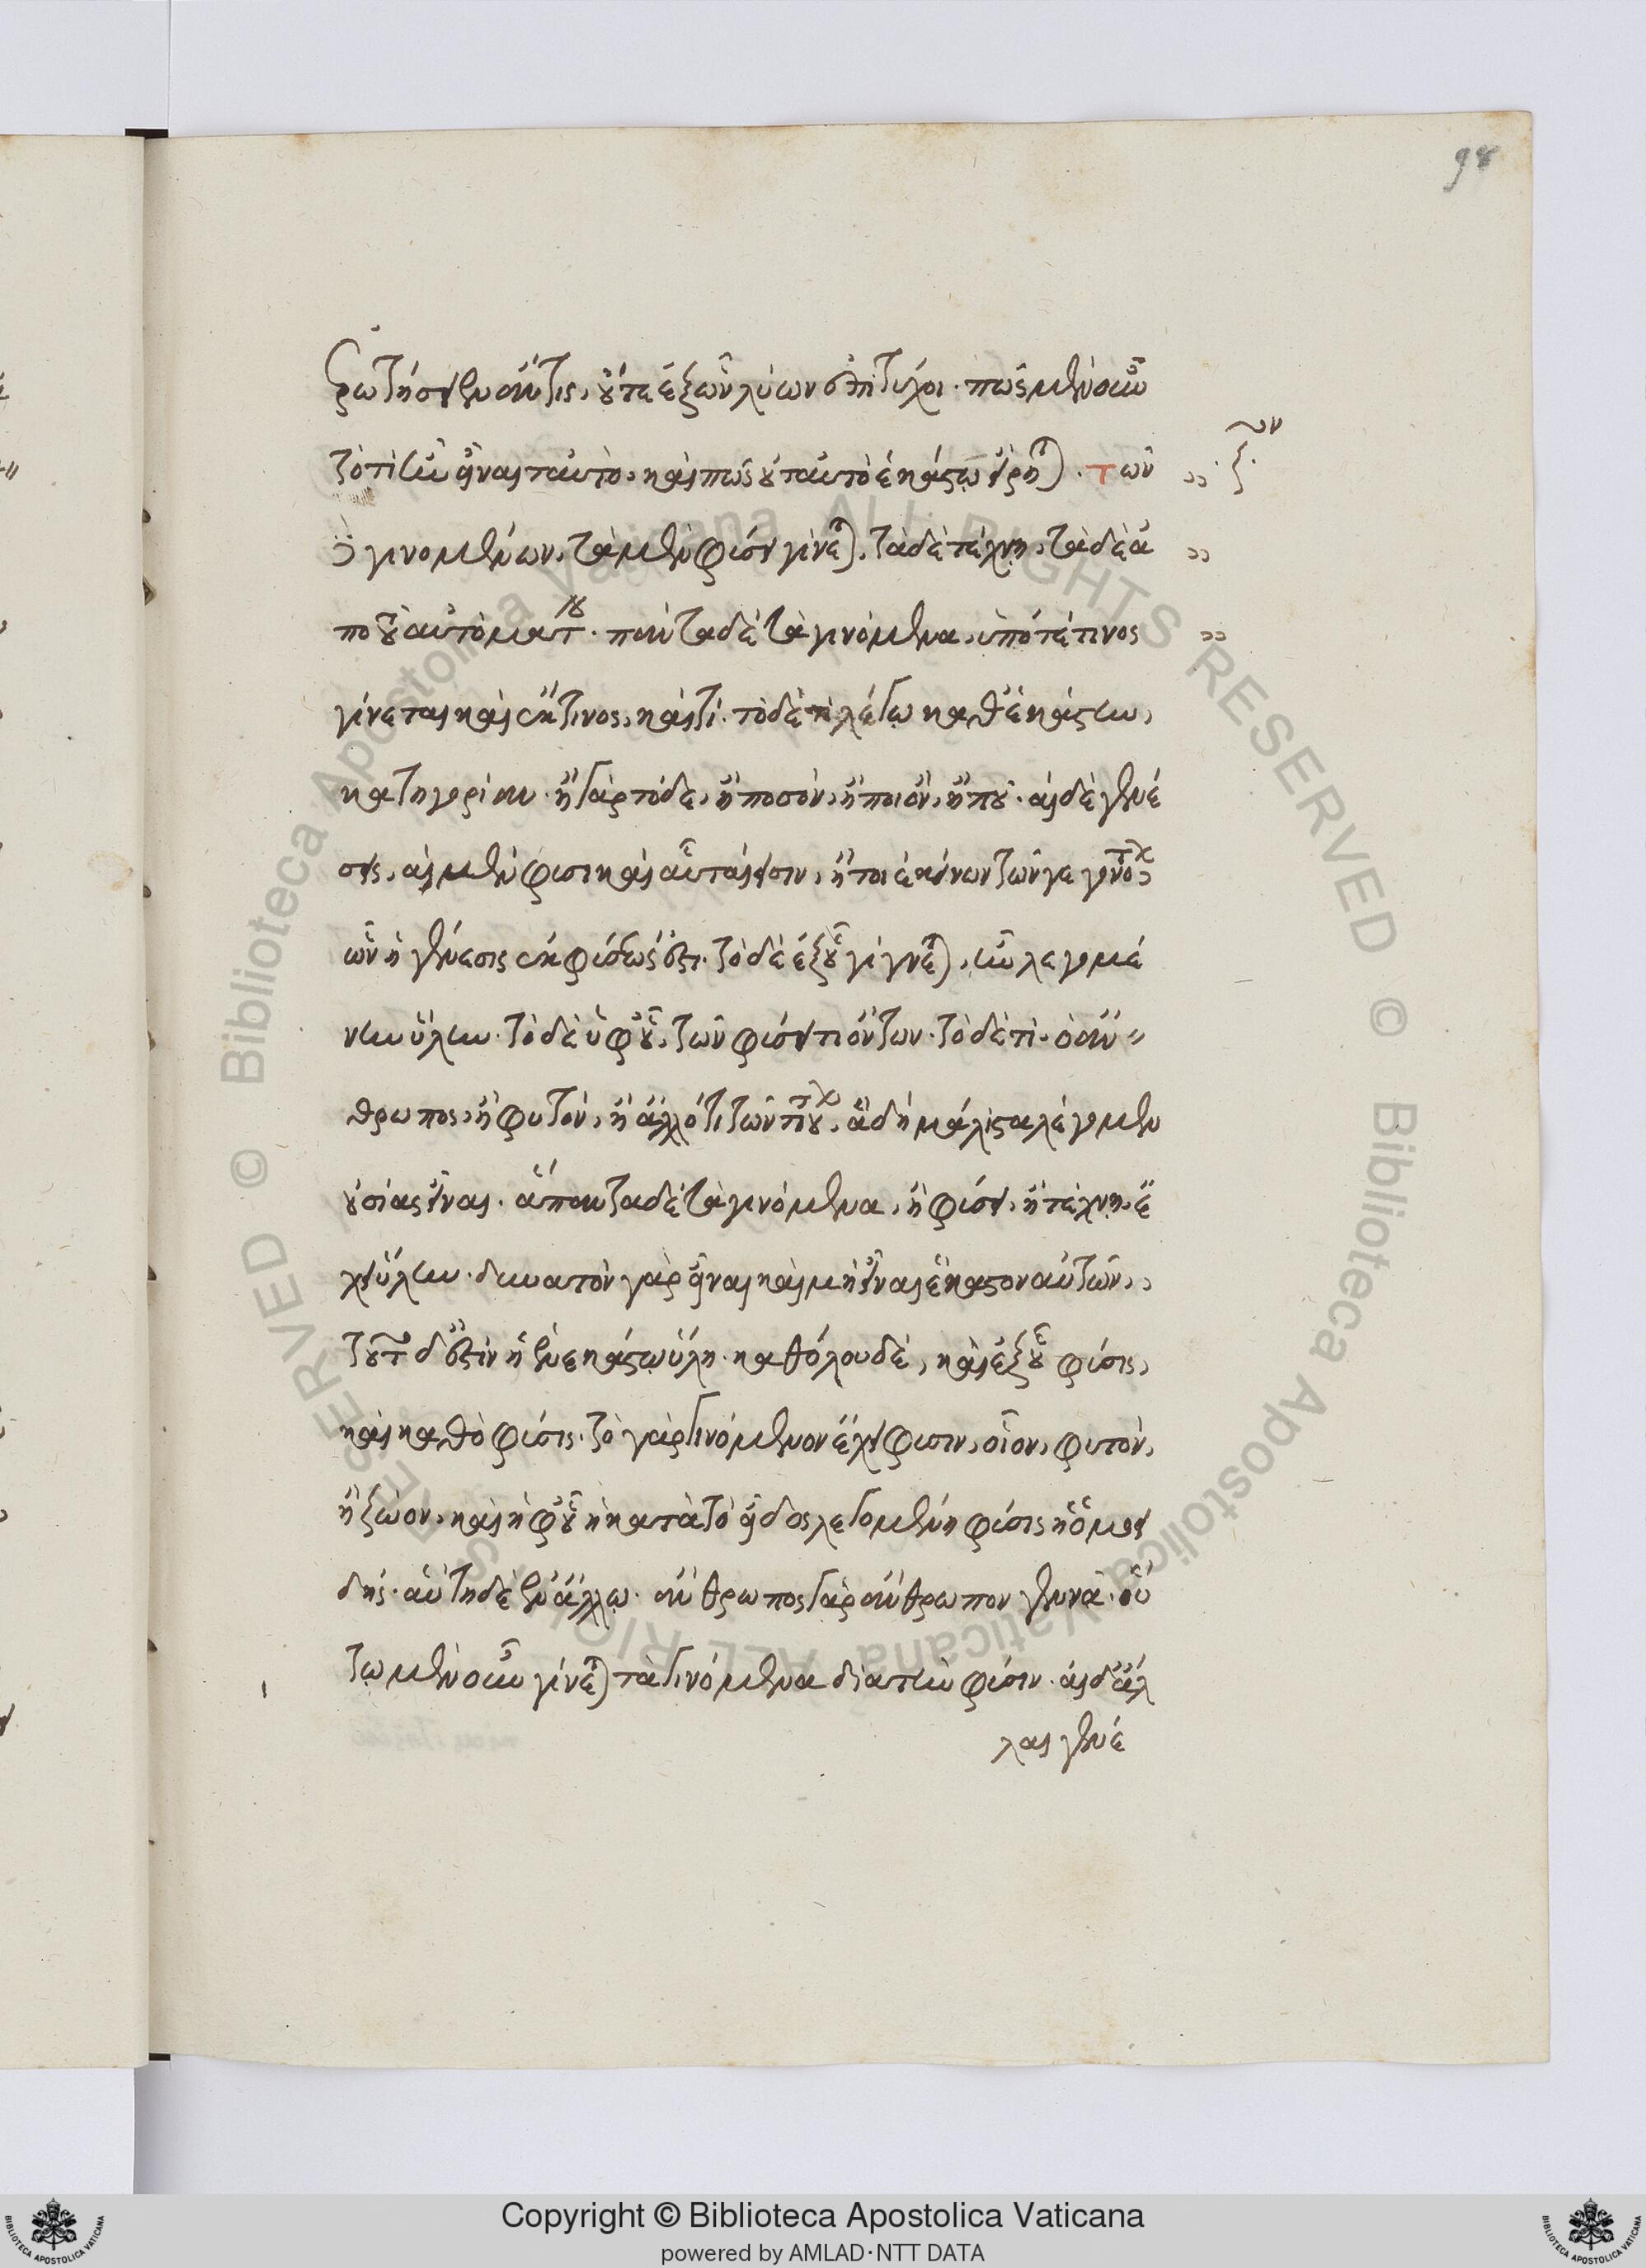 98
ρωτήσειεν ἄν τις, οὔτε ἐξ ὧν λύων ἐπιτύχοι. πῶς μὲν οὖν
τὸ τί ἦν εἶναι ταὐτὸ, καὶ πῶς οὐ ταὐτὸ ἑκάστῳ εἴρηται. τῶν
δὲ γινομένων, τὰ μὲν φύσει γίνεται, τὰ δὲ τέχνῃ, τὰ δὲ ἀ
πὸ τοῦ αὐτομάτου. πάντα δὲ τὰ γινόμενα, ὑπό τέ τινος
γίνεται καὶ ἔκ τινος, καὶ τί. τὸ δὲ τὶ λέγω καθ' ἑκάστην,
κατηγορίαν. ἢ γὰρ τόδε, ἢ ποσόν, ἢ ποιόν, ἢ πού. αἱ δὲ γενέ
σεις, αἱ μὲν φυσικαὶ αὗταί εἰσιν,
ὧν ἡ γένεσις ἐκ φύσεώς ἐστι. τὸ δὲ ἐξ οὗ γίγνεται, ἣν λέγομε
ν ὕλην. τὸ δὲ ὑφ' οὗ, τῶν φύσει τι ὄντων. τὸ δὲ τὶ. ὁ ἄν
θρωπος, ἢ φυτόν, ἢ ἄλλό τι τῶν τοιούτων, ἃ δὴ μάλιστα λέγομεν
οὐσίας εἶναι. ἅπαντα δὲ τὰ γινόμενα, ἢ φύσει, ἢ τέχνῃ, ἔ
χει ὕλην. δυνατὸν γὰρ εἶναι καὶ μὴ εἶναι ἕκαστον αὐτῶν,
τοῦτο δ' ἐστὶν ἡ ἐν ἑκάστῳ ὕλη. καθόλου δὲ, καὶ ἐξ οὗ φύσις,
καὶ καθὸ φύσις. τὸ γὰρ γινόμενον ἔχει φύσιν, οἷον, φυτόν,
ἢ ζῷον, καὶ ὑφ' οὗ ἡ κατὰ τὸ εἶδος λεγομένη φύσις ἡ ὁμοει
δής. αὕτη δὲ ἐν ἄλλῳ. ἄνθρωπος γὰρ ἄνθρωπον γεννᾷ. οὕ
τω μὲν οὖν γίνεται τὰ γινόμενα διὰ τὴν φύσιν. αἱ δ' ἄλ
λαι γενέ
Copyright © Biblioteca Apostolica Vaticana
powered by AMLAD·NTT DATA